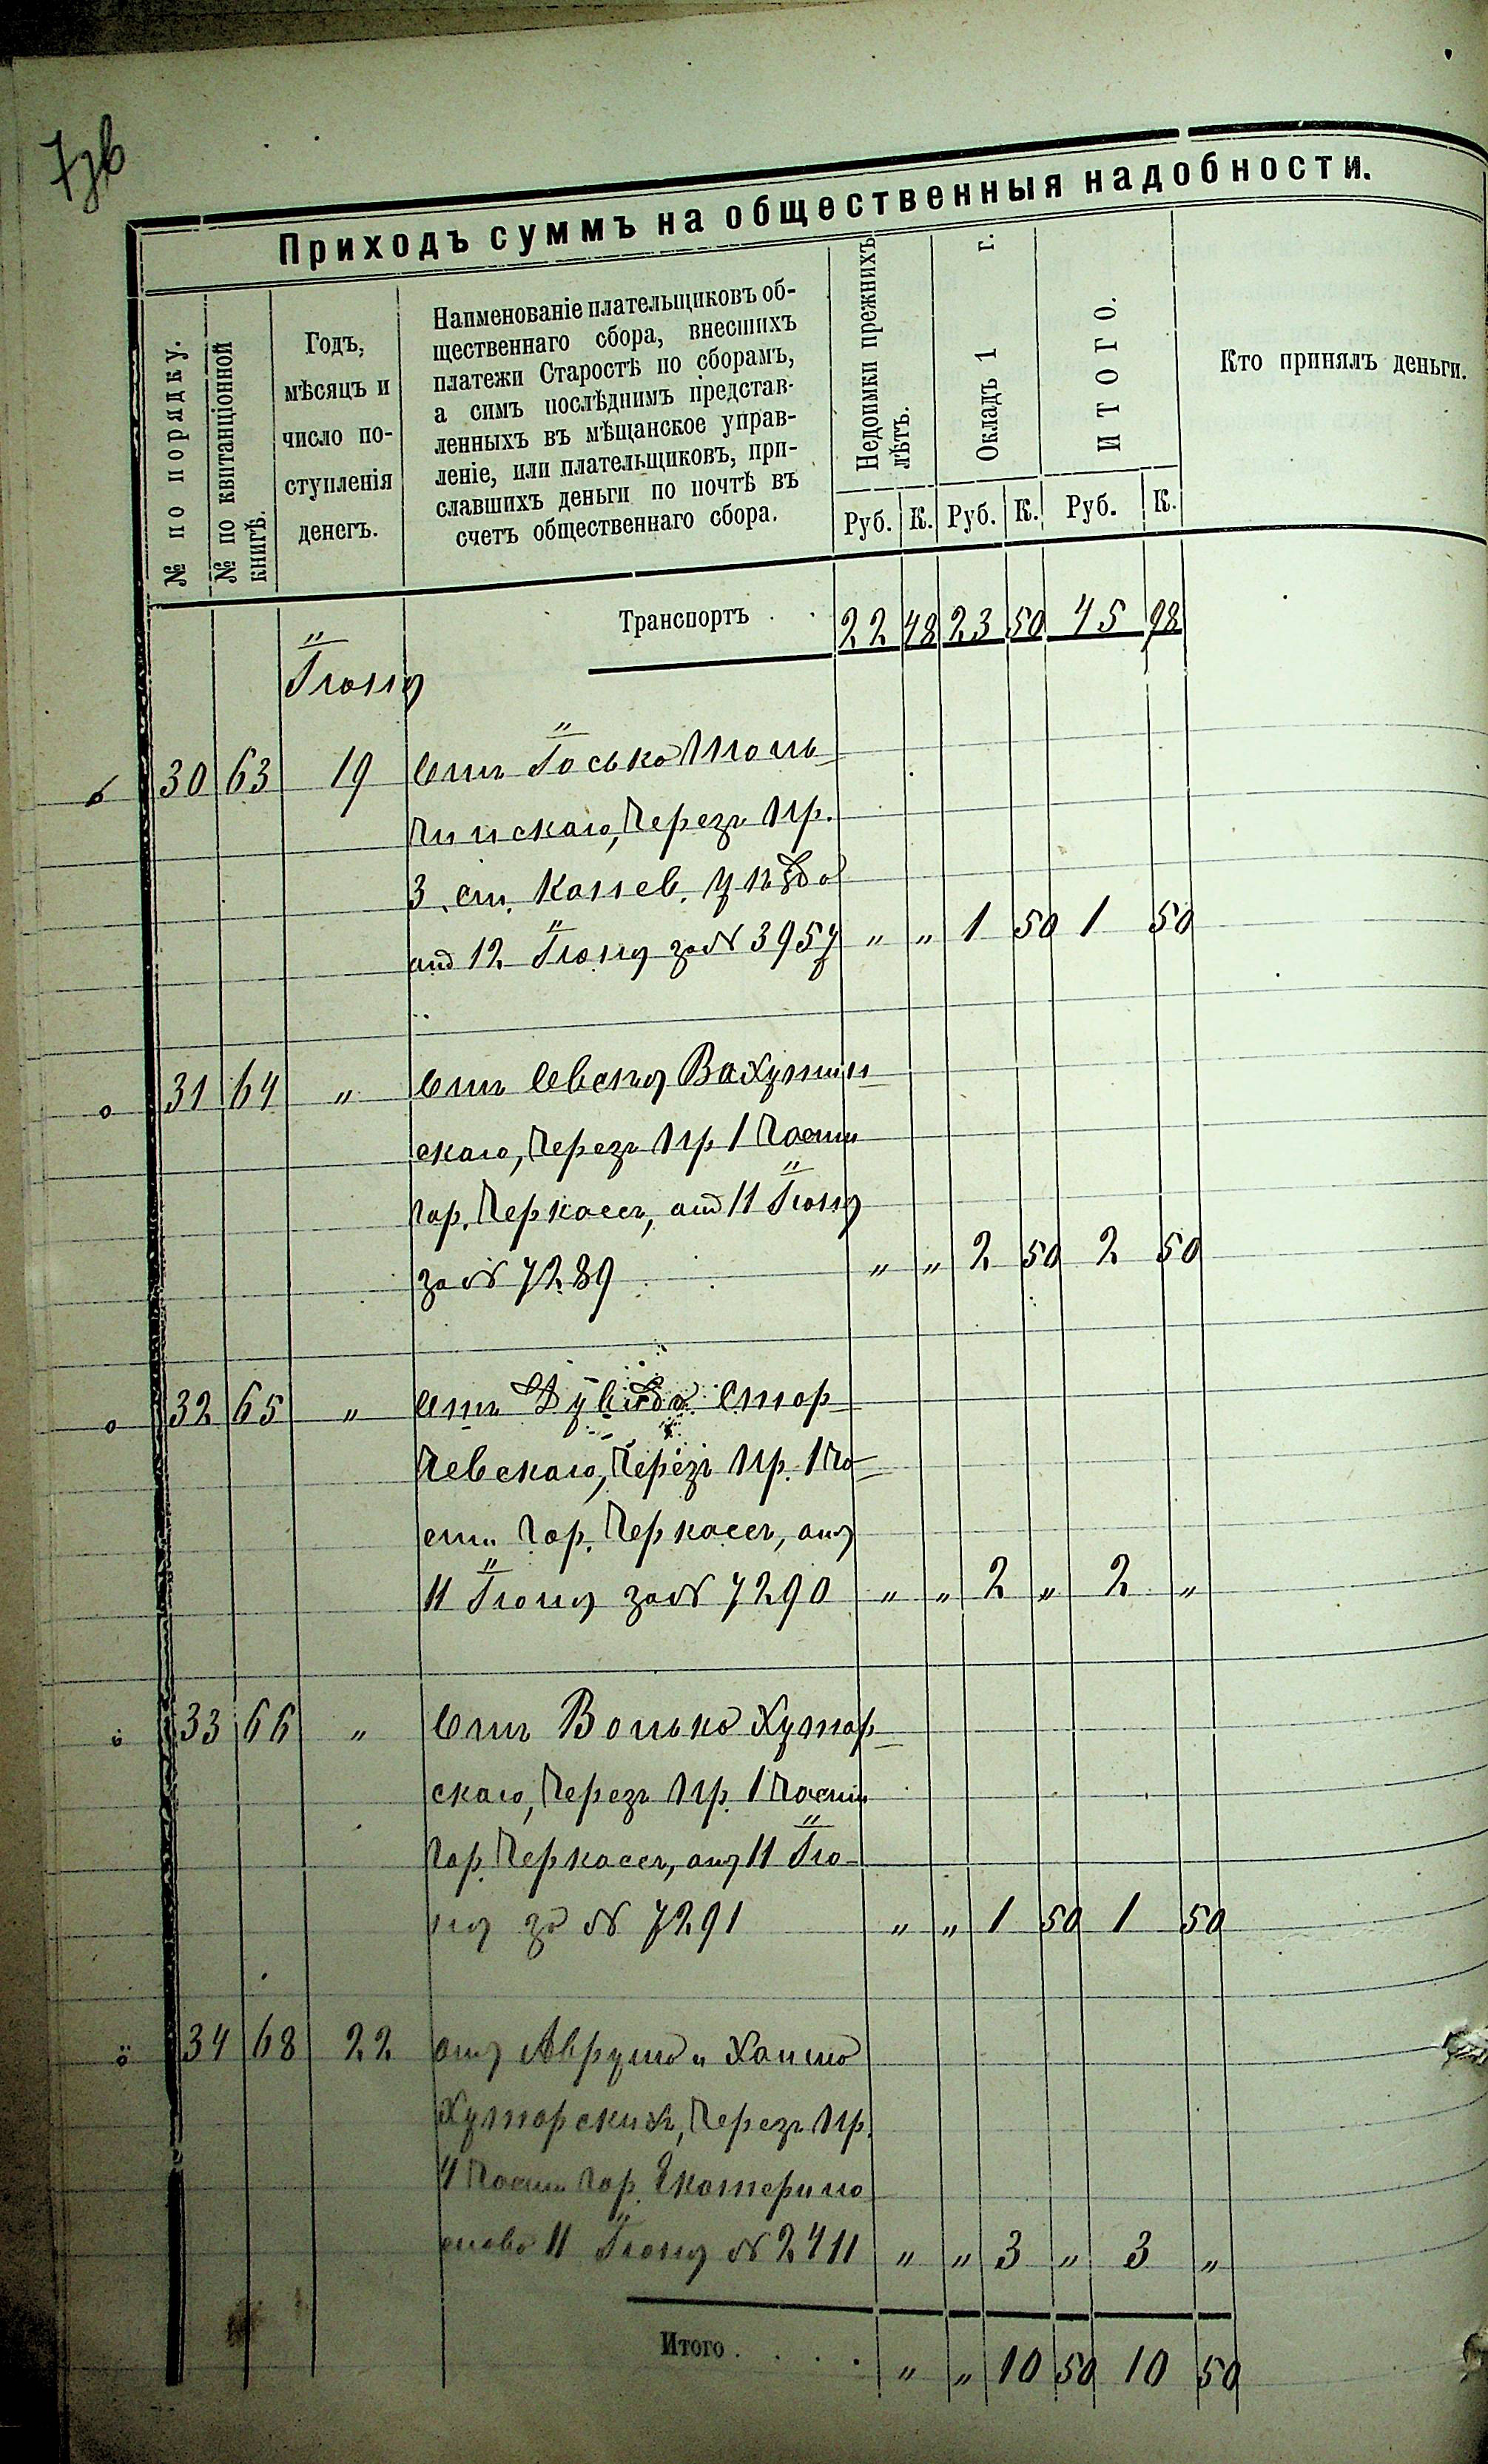 7зв
Приходъ суммъ на общественныя надобности.
№ по порядку.
№ по квитанціонной книгѣ.
Годъ,
мѣсяцъ и
число по-
ступленія
денегъ.
Наименованіе плательщиковъ об-
щественнаго сбора, внесшихъ
платежи Старостѣ по сборамъ,
а симъ послѣднимъ представ-
ленныхъ въ мѣщанское управ-
леніе, или плательщиковъ, при-
славшихъ деньги по почтѣ въ
счетъ общественнаго сбора.
Недоимки прежнихъ
лѣтъ.
Окладъ 1 г.
ИТОГО.
Кто принялъ деньги.
Руб. К. Руб. К. Руб. К.
Транспортъ . . 22 48 23 50 45 98
Іюня
30 63 19 Отъ Іоська
скаго, Через Пр.
3 ст. Канев. уѣзда
отъ 12 Іюня за № 3957 " " 1 50 1 50
31 64 " Отъ Овсея
скаго, Через Пр 1 Части
гор. Черкассъ, отъ 11 Іюня
за № 7289 " " 2 50 2 50
32 65 " Отъ Дувида Стор
чевскаго, Через Пр. 1 Ча-
сти гор. Черкассъ, отъ
11 Іюня за № 7290 " " 2 " 2 "
33 66 " Отъ Волько Хутор-
скаго, Через Пр. 1 Части
гор. Черкассъ, отъ 11 Ію-
ня за № 7291 " " 1 50 1 50
34 68 22 отъ Аврума и Хаима
Хуторскихъ, Через Пр.
4 Части гор. Екатерино
слава 11 Іюня № 2411 " " 3 " 3 "
Итого . . . . " " 10 50 10 50